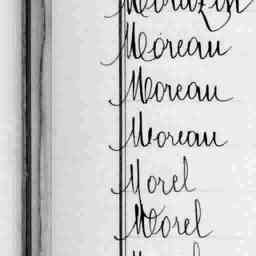 Morazin
Moreau
Moreau
Moreau
Morel
Morel